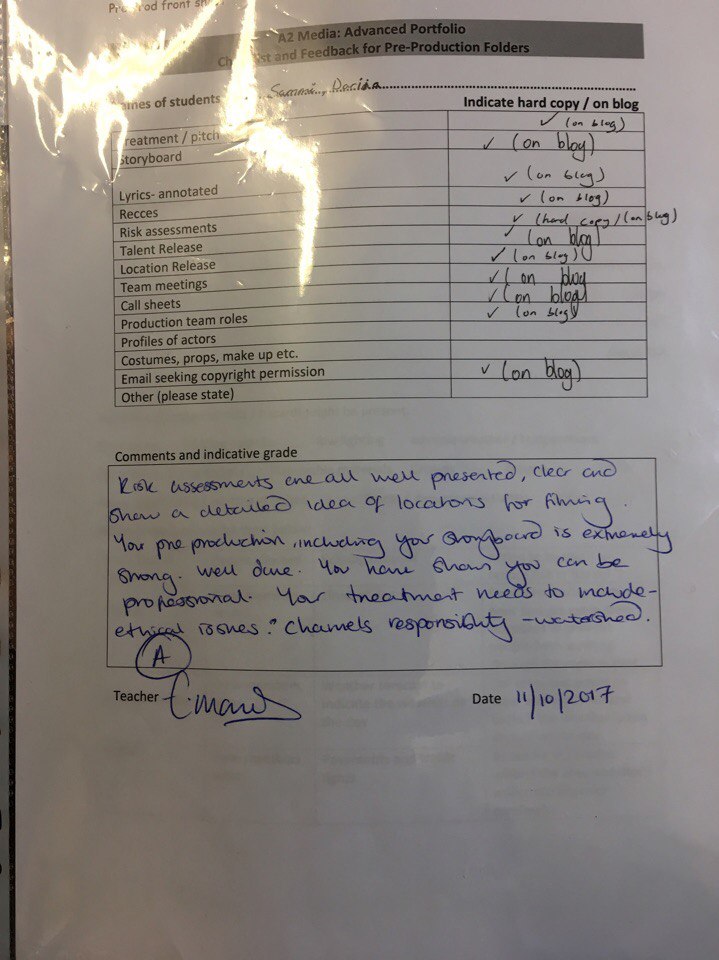 front sh
A2 Media: Advanced Portfolio
and Feedback for Pre-Production Folders
mes of students
Indicate hard copy / on blog
Treatment / pitch ✓ (on blog)
Storyboard ✓ (on blog)
Lyrics- annotated ✓ (on blog)
Recces ✓ (on blog)
Risk assessments ✓ (hard copy / (on blog)
Talent Release ✓ (on blog)
Location Release ✓ (on blog)
Team meetings ✓ (on blog
Call sheets ✓ (on blog)
Production team roles ✓ (on blog)
Profiles of actors
Costumes, props, make up etc.
Email seeking copyright permission ✓ (on blog)
Other (please state)
Comments and indicative grade
Risk assessments are all well presented, clear and
show a detailed idea of locations for filming.
Your pre production, including your storyboard is extremely
strong. Well done. You have shown you can be
professional. Your treatment needs to include-
ethical issues? Channels responsibility - watershed.
A
Teacher
Date 11/10/2017